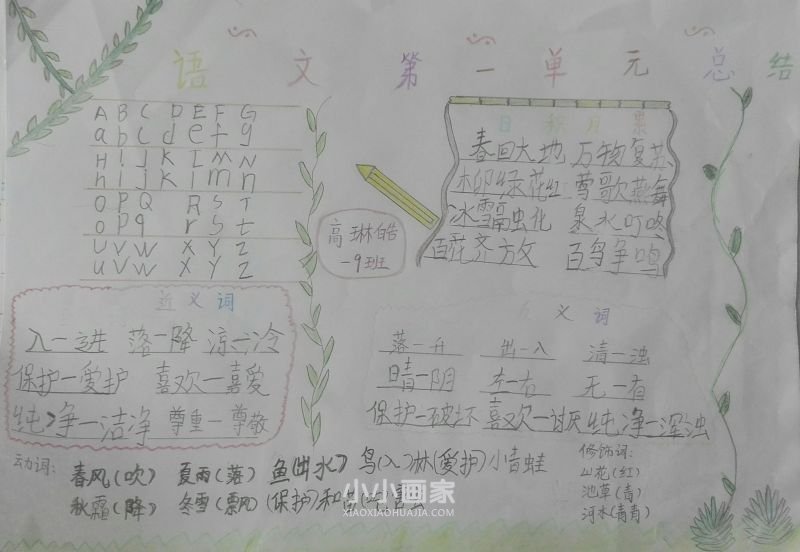 语文第一单元总结
A B C D E F G
a b c d e f g
H I J K L M N
h i j k l m n
O P Q R S T
o p q r s t
U V W X Y Z
u v w x y z
高琳皓
一9班
日积月累
春回大地 万物复苏
柳绿花红 莺歌燕舞
冰雪融化 泉水叮咚
百花齐放 百鸟争鸣
近义词
入一进 落一降 凉一冷
保护一爱护 喜欢一喜爱
纯净一洁净 尊重一尊敬
反义词
落一升 出一入 清一浊
晴一阴 左一右 无一有
保护一破坏 喜欢一讨厌 纯净一浑浊
动词:
春风(吹) 夏雨(落) 鱼(出水) 鸟(入)林 (爱护)小青蛙
秋霜(降) 冬雪(飘) (保护)和
修饰词:
山花(红)
池草(青)
河水(青青)
小小画家
XIAOXIAOHUAJIA.COM